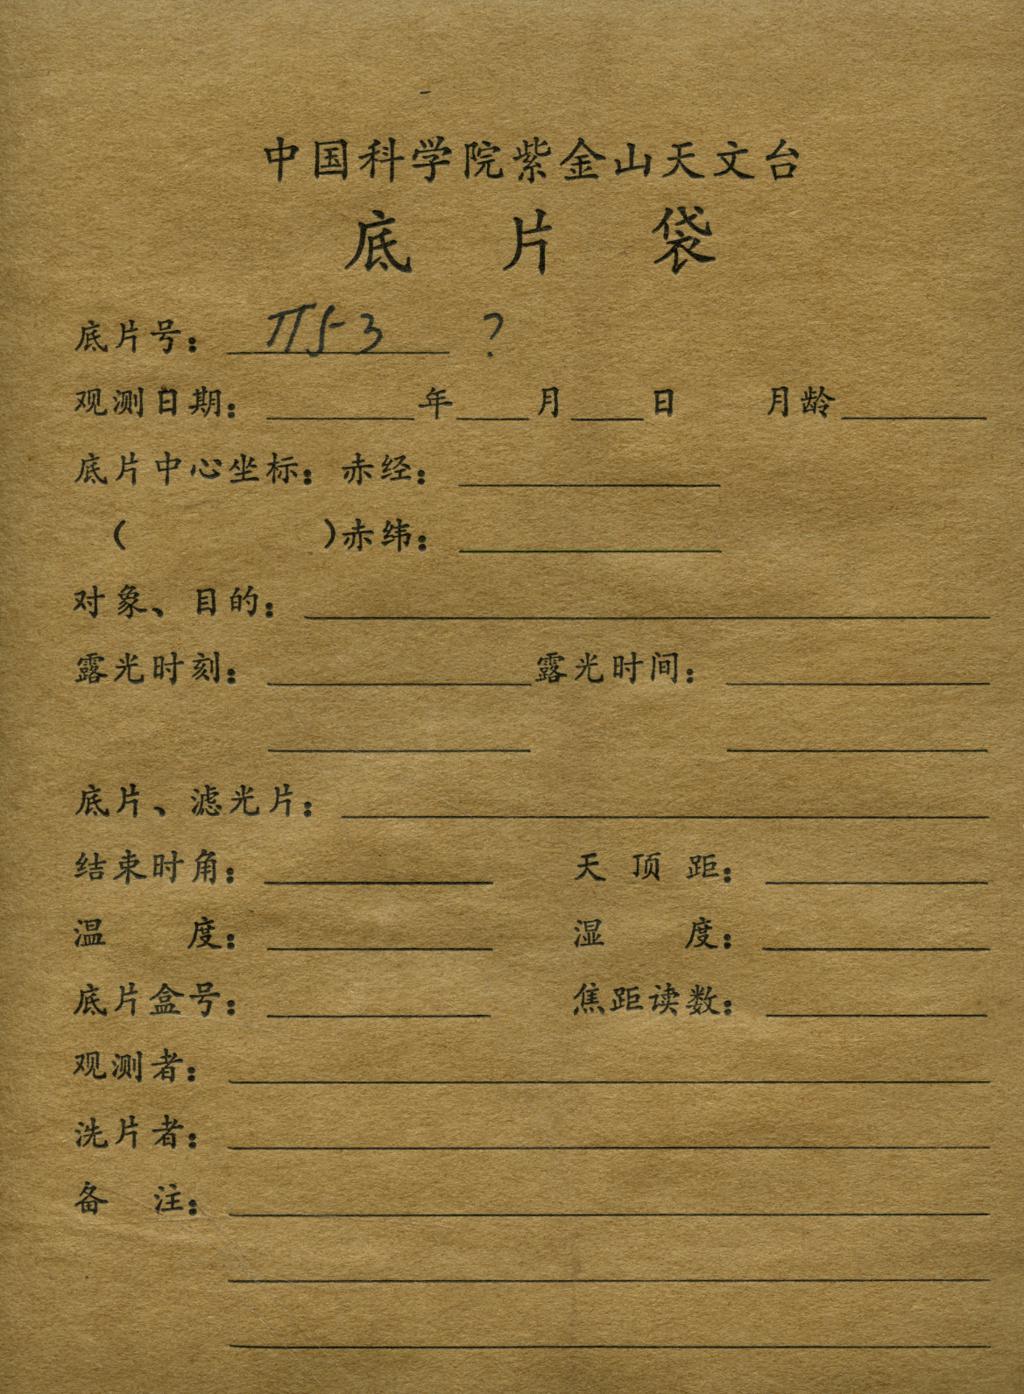 中国科学院紫金山天文台
底片袋
底片号： π53 ？
观测日期： 年 月 日 月龄
底片中心坐标：赤经：
（ ）赤纬：
对象、目的：
露光时刻： 露光时间：
底片、滤光片：
结束时角： 天顶距：
温度： 湿度：
底片盒号： 焦距读数：
观测者：
洗片者：
备注：